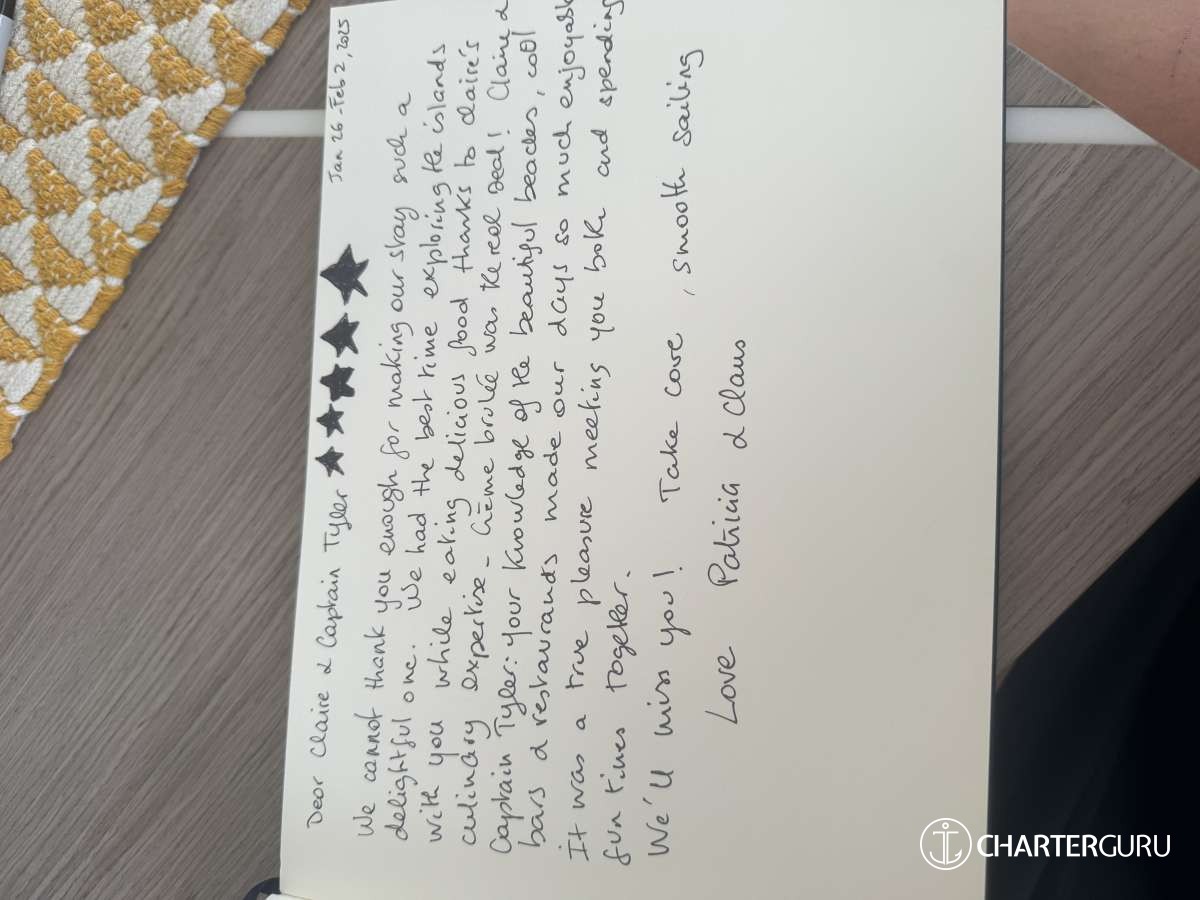 Dear Claire & Captain Tyler ★★★★★ Jan 26-Feb 2, 2025
We cannot thank you enough for making our stay such a
delightful one. We had the best time exploring the islands
with you while eating delicious food thanks to Claire's
culinary expertise - crème brulée was the real deal! Claire &
Captain Tyler: your knowledge of the beautiful beaches, cool
bars & restaurants made our days so much enjoyable
It was a true pleasure meeting you both and spending
fun times together.
We'll miss you! Take care, smooth sailing
Love Patricia & Claus
CHARTERGURU